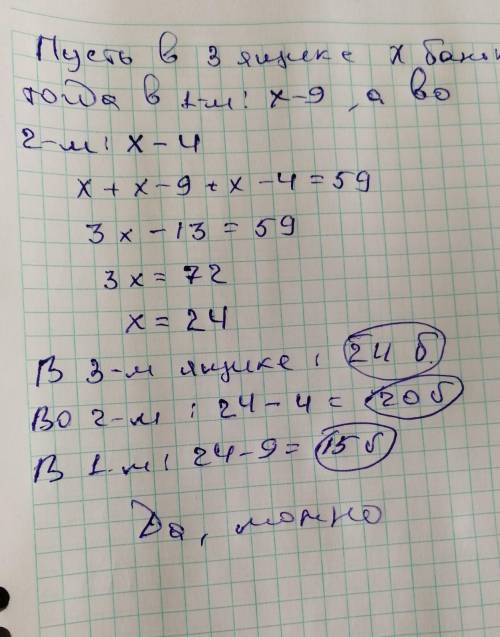 Пусть в 3 ящике x бан
тогда в 1-м: x-9, а во
2-м: x-4
x + x-9 + x-4 = 59
3x-13 = 59
3x = 72
x = 24
В 3-м ящике: 24 б.
Во 2-м: 24-4 = 20 б
В 1-м: 24-9 = 15 б
Да, можно